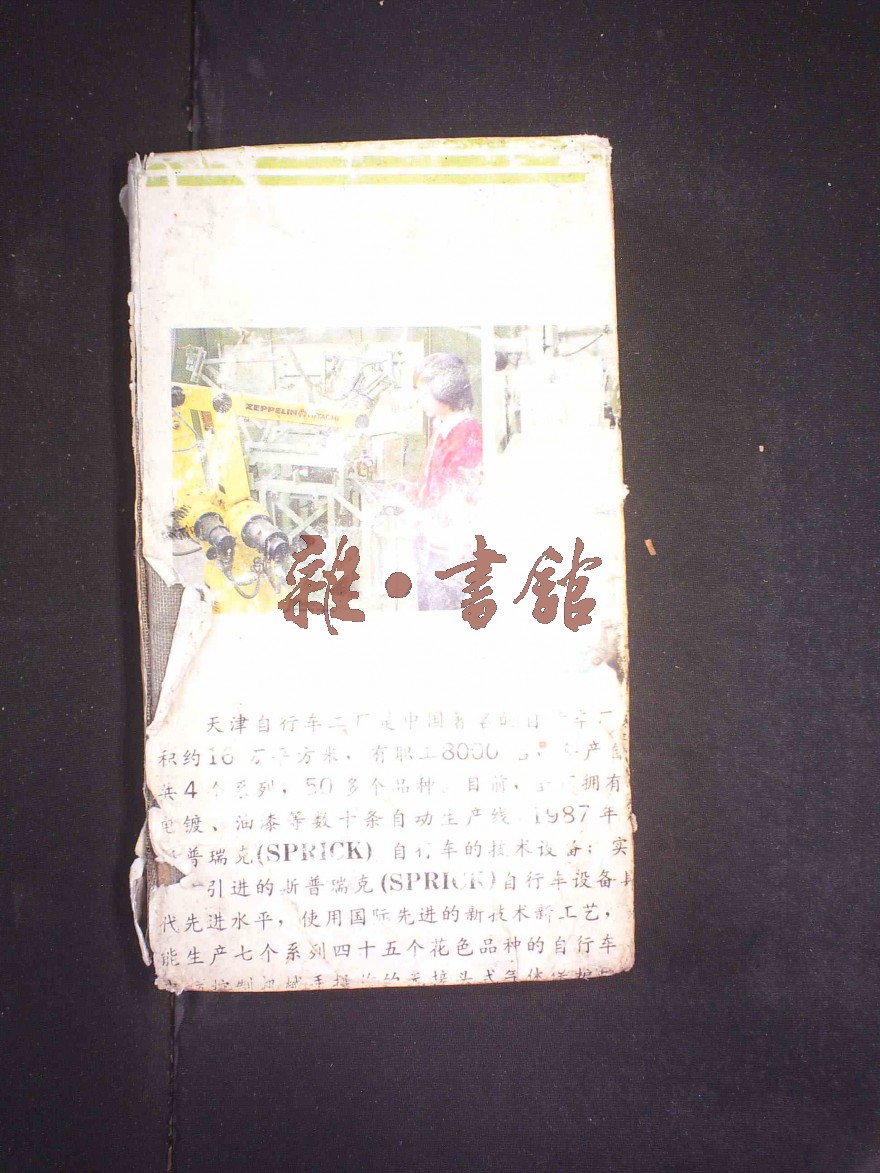 ZEPPELIN
雜·書館
天津自行车工厂是中国著名的自行车厂
积约16万平方米,有职工8000
共4个系列,50多个品种。目前,拥有
电镀、油漆等数十条自动生产线 1987年
普瑞克(SPRICK) 自行车的技术设备;实
引进的斯普瑞克(SPRICK)自行车设备具
代先进水平,使用国际先进的新技术新工艺,
能生产七个系列四十五个花色品种的自行车
控制机械手操